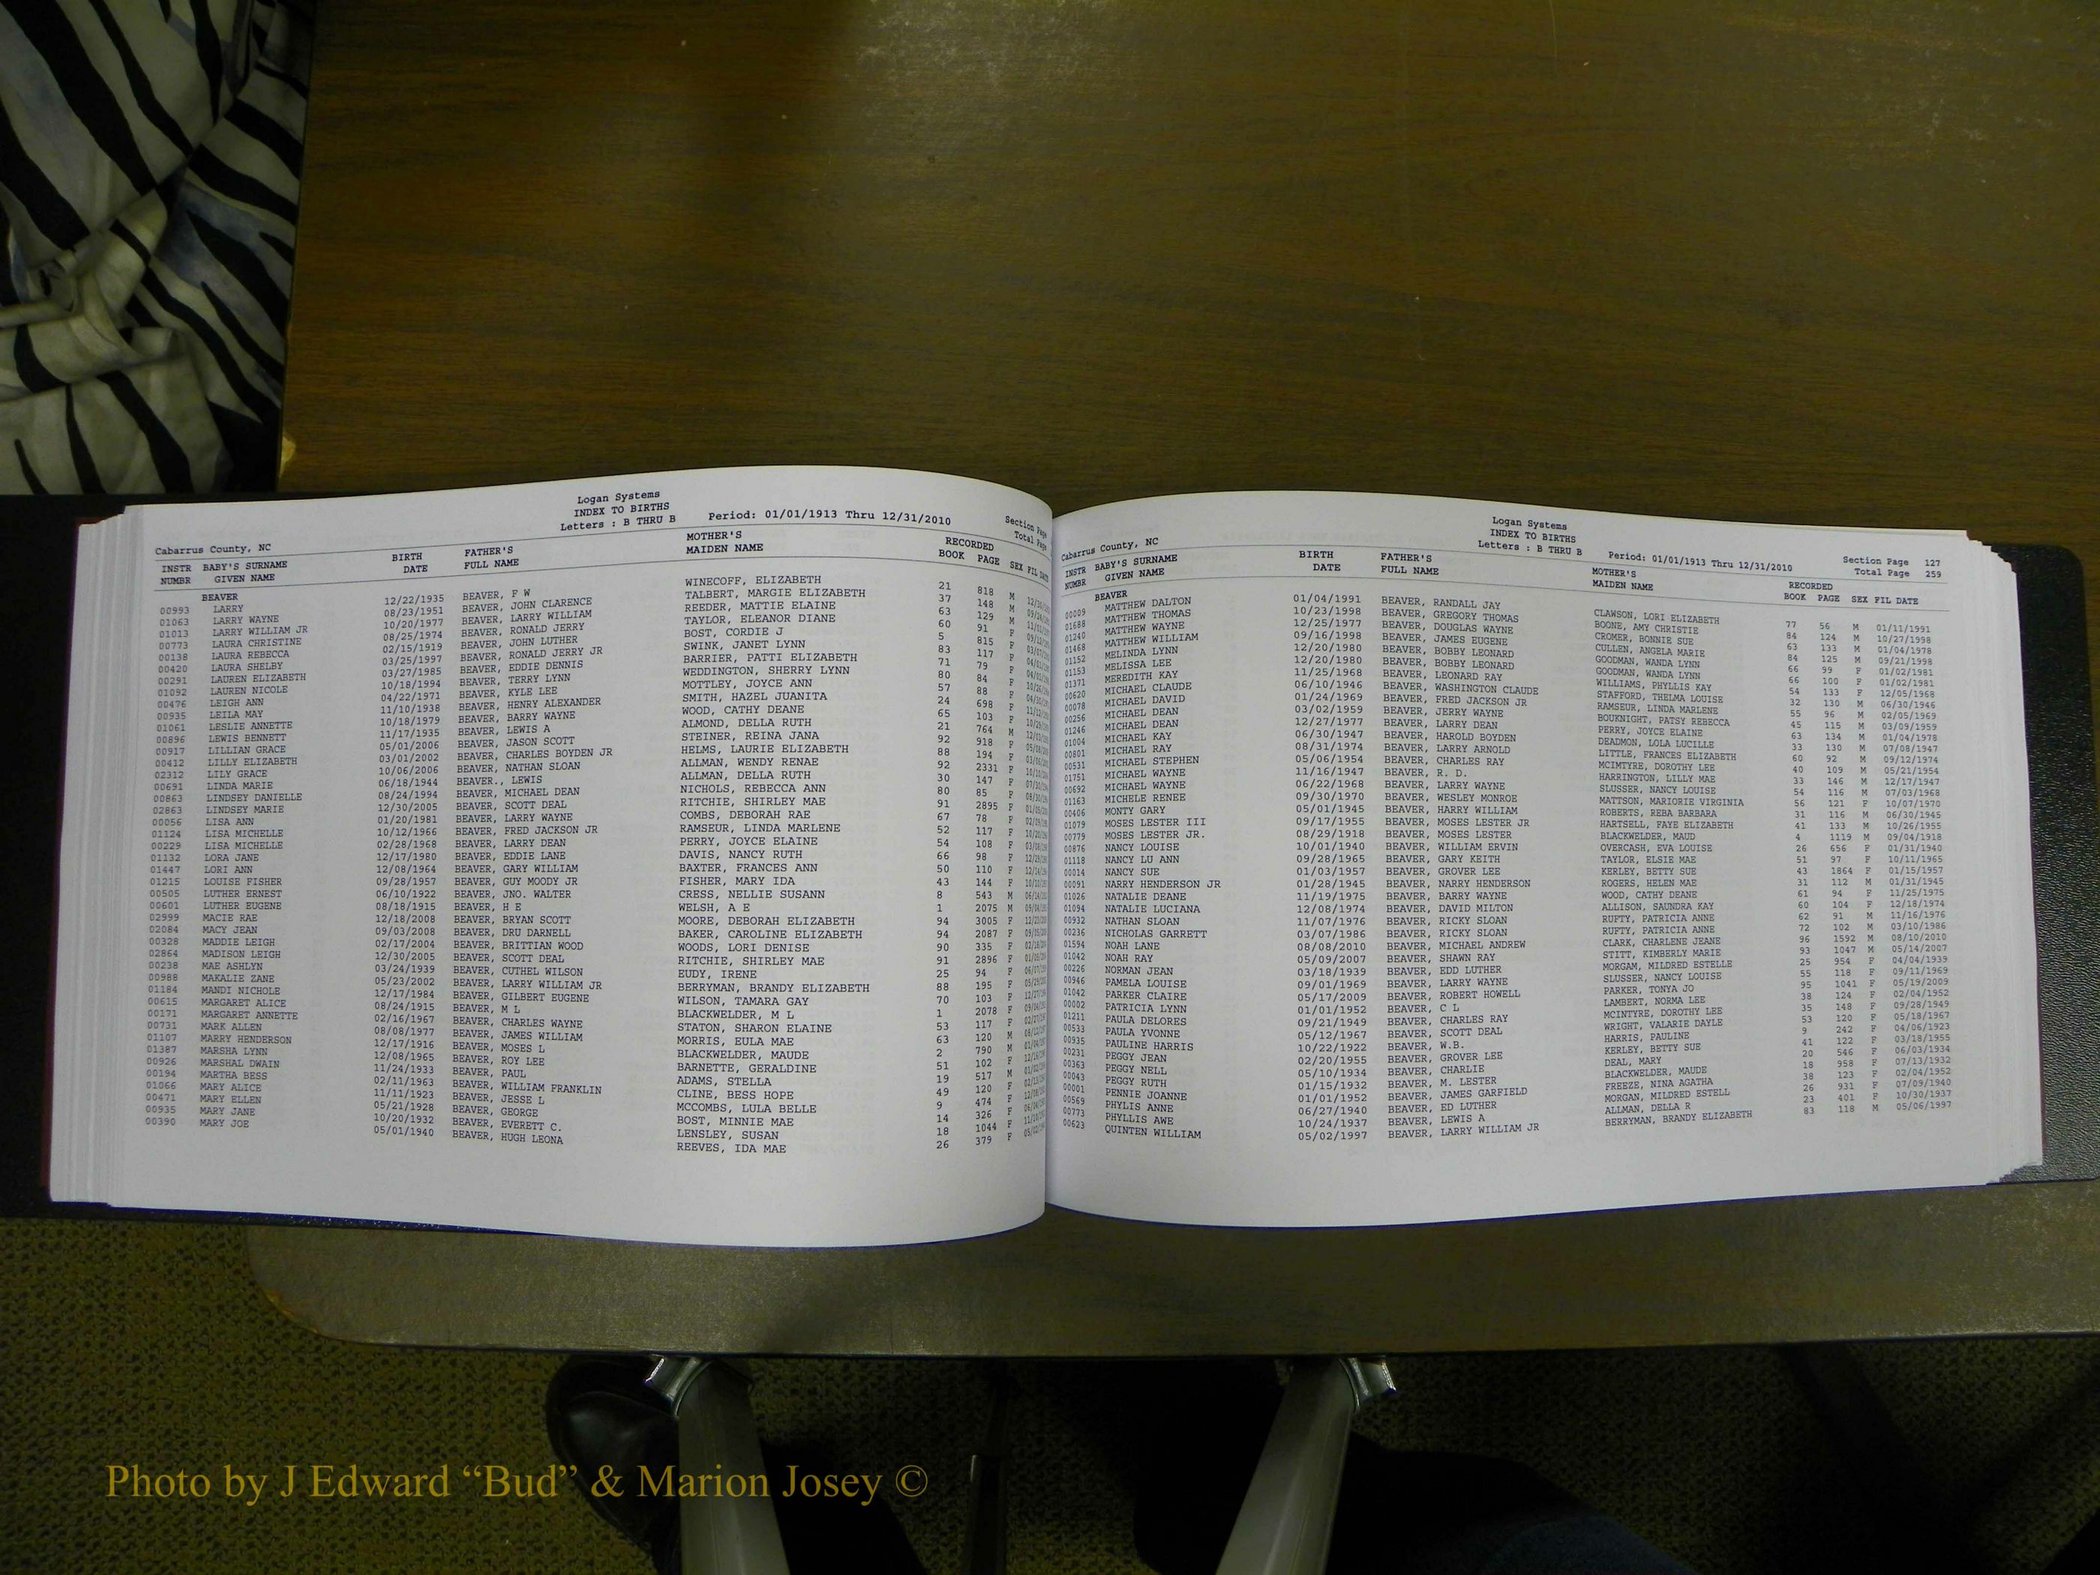 Logan Systems
INDEX TO BIRTHS
Letters : B THRU B Period: 01/01/1913 Thru 12/31/2010
Section Page
Total Page
Cabarrus County, NC
INSTR BABY'S SURNAME BIRTH FATHER'S MOTHER'S RECORDED
NUMBR GIVEN NAME DATE FULL NAME MAIDEN NAME BOOK PAGE SEX FIL DATE
BEAVER
00993 LARRY 12/22/1935 BEAVER, F W WINECOFF, ELIZABETH 21 818 M
01063 LARRY WAYNE 08/23/1951 BEAVER, JOHN CLARENCE TALBERT, MARGIE ELIZABETH 37 148 M
01013 LARRY WILLIAM JR 10/20/1977 BEAVER, LARRY WILLIAM REEDER, MATTIE ELAINE 63 129 M
00773 LAURA CHRISTINE 08/25/1974 BEAVER, RONALD JERRY TAYLOR, ELEANOR DIANE 60 91 F
00138 LAURA REBECCA 02/15/1919 BEAVER, JOHN LUTHER BOST, CORDIE J 5 815 F
00420 LAURA SHELBY 03/25/1997 BEAVER, RONALD JERRY JR SWINK, JANET LYNN 83 117 F
00291 LAUREN ELIZABETH 03/27/1985 BEAVER, EDDIE DENNIS BARRIER, PATTI ELIZABETH 71 79 F
01092 LAUREN NICOLE 10/18/1994 BEAVER, TERRY LYNN WEDDINGTON, SHERRY LYNN 80 84 F
00476 LEIGH ANN 04/22/1971 BEAVER, KYLE LEE MOTTLEY, JOYCE ANN 57 88 F
00935 LEILA MAY 11/10/1938 BEAVER, HENRY ALEXANDER SMITH, HAZEL JUANITA 24 698 F
01061 LESLIE ANNETTE 10/18/1979 BEAVER, BARRY WAYNE WOOD, CATHY DEANE 65 103 F
00896 LEWIS BENNETT 11/17/1935 BEAVER, LEWIS A ALMOND, DELLA RUTH 21 764 M
00917 LILLIAN GRACE 05/01/2006 BEAVER, JASON SCOTT STEINER, REINA JANA 92 918 F
00412 LILLY ELIZABETH 03/01/2002 BEAVER, CHARLES BOYDEN JR HELMS, LAURIE ELIZABETH 88 194 F
02312 LILY GRACE 10/06/2006 BEAVER, NATHAN SLOAN ALLMAN, WENDY RENAE 92 2331 F
00691 LINDA MARIE 06/18/1944 BEAVER., LEWIS ALLMAN, DELLA RUTH 30 147 F
00863 LINDSEY DANIELLE 08/24/1994 BEAVER, MICHAEL DEAN NICHOLS, REBECCA ANN 80 85 F
02863 LINDSEY MARIE 12/30/2005 BEAVER, SCOTT DEAL RITCHIE, SHIRLEY MAE 91 2895 F
00056 LISA ANN 01/20/1981 BEAVER, LARRY WAYNE COMBS, DEBORAH RAE 67 78 F
01124 LISA MICHELLE 10/12/1966 BEAVER, FRED JACKSON JR RAMSEUR, LINDA MARLENE 52 117 F
00229 LISA MICHELLE 02/28/1968 BEAVER, LARRY DEAN PERRY, JOYCE ELAINE 54 108 F
01132 LORA JANE 12/17/1980 BEAVER, EDDIE LANE DAVIS, NANCY RUTH 66 98 F
01447 LORI ANN 12/08/1964 BEAVER, GARY WILLIAM BAXTER, FRANCES ANN 50 110 F
01215 LOUISE FISHER 09/28/1957 BEAVER, GUY MOODY JR FISHER, MARY IDA 43 144 F
00505 LUTHER ERNEST 06/10/1922 BEAVER, JNO. WALTER CRESS, NELLIE SUSANN 8 543 M
00601 LUTHER EUGENE 08/18/1915 BEAVER, H E WELSH, A E 1 2075 M
02999 MACIE RAE 12/18/2008 BEAVER, BRYAN SCOTT MOORE, DEBORAH ELIZABETH 94 3005 F
02084 MACY JEAN 09/03/2008 BEAVER, DRU DARNELL BAKER, CAROLINE ELIZABETH 94 2087 F
00328 MADDIE LEIGH 02/17/2004 BEAVER, BRITTIAN WOOD WOODS, LORI DENISE 90 335 F
02864 MADISON LEIGH 12/30/2005 BEAVER, SCOTT DEAL RITCHIE, SHIRLEY MAE 91 2896 F
00238 MAE ASHLYN 03/24/1939 BEAVER, CUTHEL WILSON EUDY, IRENE 25 94 F
00988 MAKALIE ZANE 05/23/2002 BEAVER, LARRY WILLIAM JR BERRYMAN, BRANDY ELIZABETH 88 195 F
01184 MANDI NICHOLE 12/17/1984 BEAVER, GILBERT EUGENE WILSON, TAMARA GAY 70 103 F
00615 MARGARET ALICE 08/24/1915 BEAVER, M L BLACKWELDER, M L 1 2078 F
00171 MARGARET ANNETTE 02/16/1967 BEAVER, CHARLES WAYNE STATON, SHARON ELAINE 53 117 F
00731 MARK ALLEN 08/08/1977 BEAVER, JAMES WILLIAM MORRIS, EULA MAE 63 120 M
01107 MARRY HENDERSON 12/17/1916 BEAVER, MOSES L BLACKWELDER, MAUDE 2 790 M
01387 MARSHA LYNN 12/08/1965 BEAVER, ROY LEE BARNETTE, GERALDINE 51 102 F
00926 MARSHAL DWAIN 11/24/1933 BEAVER, PAUL ADAMS, STELLA 19 517 M
00194 MARTHA BESS 02/11/1963 BEAVER, WILLIAM FRANKLIN CLINE, BESS HOPE 49 120 F
01066 MARY ALICE 11/11/1923 BEAVER, JESSE L MCCOMBS, LULA BELLE 9 474 F
00471 MARY ELLEN 05/21/1928 BEAVER, GEORGE BOST, MINNIE MAE 14 326 F
00935 MARY JANE 10/20/1932 BEAVER, EVERETT C. LENSLEY, SUSAN 18 1044 F
00390 MARY JOE 05/01/1940 BEAVER, HUGH LEONA REEVES, IDA MAE 26 379 F
Logan Systems
INDEX TO BIRTHS
Letters : B THRU B Period: 01/01/1913 Thru 12/31/2010
Section Page 127
Total Page 259
Cabarrus County, NC
INSTR BABY'S SURNAME BIRTH FATHER'S MOTHER'S RECORDED
NUMBR GIVEN NAME DATE FULL NAME MAIDEN NAME BOOK PAGE SEX FIL DATE
BEAVER
00009 MATTHEW DALTON 01/04/1991 BEAVER, RANDALL JAY CLAWSON, LORI ELIZABETH 77 56 M 01/11/1991
01688 MATTHEW THOMAS 10/23/1998 BEAVER, GREGORY THOMAS BOONE, AMY CHRISTIE 84 124 M 10/27/1998
01240 MATTHEW WAYNE 12/25/1977 BEAVER, DOUGLAS WAYNE CROMER, BONNIE SUE 63 133 M 01/04/1978
01468 MATTHEW WILLIAM 09/16/1998 BEAVER, JAMES EUGENE CULLEN, ANGELA MARIE 84 125 M 09/21/1998
01152 MELINDA LYNN 12/20/1980 BEAVER, BOBBY LEONARD GOODMAN, WANDA LYNN 66 99 F 01/02/1981
01153 MELISSA LEE 12/20/1980 BEAVER, BOBBY LEONARD GOODMAN, WANDA LYNN 66 100 F 01/02/1981
01371 MEREDITH KAY 11/25/1968 BEAVER, LEONARD RAY WILLIAMS, PHYLLIS KAY 54 133 F 12/05/1968
00620 MICHAEL CLAUDE 06/10/1946 BEAVER, WASHINGTON CLAUDE STAFFORD, THELMA LOUISE 32 130 M 06/30/1946
00078 MICHAEL DAVID 01/24/1969 BEAVER, FRED JACKSON JR RAMSEUR, LINDA MARLENE 55 96 M 02/05/1969
00256 MICHAEL DEAN 03/02/1959 BEAVER, JERRY WAYNE BOUKNIGHT, PATSY REBECCA 45 115 M 03/09/1959
01246 MICHAEL DEAN 12/27/1977 BEAVER, LARRY DEAN PERRY, JOYCE ELAINE 63 134 M 01/04/1978
01004 MICHAEL KAY 06/30/1947 BEAVER, HAROLD BOYDEN DEADMON, LOLA LUCILLE 33 130 M 07/08/1947
00801 MICHAEL RAY 08/31/1974 BEAVER, LARRY ARNOLD LITTLE, FRANCES ELIZABETH 60 92 M 09/12/1974
00531 MICHAEL STEPHEN 05/06/1954 BEAVER, CHARLES RAY MCIMTYRE, DOROTHY LEE 40 109 M 05/21/1954
01751 MICHAEL WAYNE 11/16/1947 BEAVER, R. D. HARRINGTON, LILLY MAE 33 146 M 12/17/1947
00692 MICHAEL WAYNE 06/22/1968 BEAVER, LARRY WAYNE SLUSSER, NANCY LOUISE 54 116 M 07/03/1968
01163 MICHELE RENEE 09/30/1970 BEAVER, WESLEY MONROE MATTSON, MARIORIE VIRGINIA 56 121 F 10/07/1970
00406 MONTY GARY 05/01/1945 BEAVER, HARRY WILLIAM ROBERTS, REBA BARBARA 31 116 M 06/30/1945
01079 MOSES LESTER III 09/17/1955 BEAVER, MOSES LESTER JR HARTSELL, FAYE ELIZABETH 41 133 M 10/26/1955
00779 MOSES LESTER JR. 08/29/1918 BEAVER, MOSES LESTER BLACKWELDER, MAUD 4 1119 M 09/04/1918
00876 NANCY LOUISE 10/01/1940 BEAVER, WILLIAM ERVIN OVERCASH, EVA LOUISE 26 656 F 01/31/1940
01118 NANCY LU ANN 09/28/1965 BEAVER, GARY KEITH TAYLOR, ELSIE MAE 51 97 F 10/11/1965
00014 NANCY SUE 01/03/1957 BEAVER, GROVER LEE KERLEY, BETTY SUE 43 1864 F 01/15/1957
00091 NARRY HENDERSON JR 01/28/1945 BEAVER, NARRY HENDERSON ROGERS, HELEN MAE 31 112 M 01/31/1945
01026 NATALIE DEANE 11/19/1975 BEAVER, BARRY WAYNE WOOD, CATHY DEANE 61 94 F 11/25/1975
01094 NATALIE LUCIANA 12/08/1974 BEAVER, DAVID MILTON ALLISON, SAUNDRA KAY 60 104 F 12/18/1974
00932 NATHAN SLOAN 11/07/1976 BEAVER, RICKY SLOAN RUFTY, PATRICIA ANNE 62 91 M 11/16/1976
00236 NICHOLAS GARRETT 03/07/1986 BEAVER, RICKY SLOAN RUFTY, PATRICIA ANNE 72 102 M 03/10/1986
01594 NOAH LANE 08/08/2010 BEAVER, MICHAEL ANDREW CLARK, CHARLENE JEANE 96 1592 M 08/10/2010
01042 NOAH RAY 05/09/2007 BEAVER, SHAWN RAY STITT, KIMBERLY MARIE 93 1047 M 05/14/2007
00226 NORMAN JEAN 03/18/1939 BEAVER, EDD LUTHER MORGAM, MILDRED ESTELLE 25 954 F 04/04/1939
00946 PAMELA LOUISE 09/01/1969 BEAVER, LARRY WAYNE SLUSSER, NANCY LOUISE 55 118 F 09/11/1969
01042 PARKER CLAIRE 05/17/2009 BEAVER, ROBERT HOWELL PARKER, TONYA JO 95 1041 F 05/19/2009
00002 PATRICIA LYNN 01/01/1952 BEAVER, C L LAMBERT, NORMA LEE 38 124 F 02/04/1952
01211 PAULA DELORES 09/21/1949 BEAVER, CHARLES RAY MCINTYRE, DOROTHY LEE 35 148 F 09/28/1949
00533 PAULA YVONNE 05/12/1967 BEAVER, SCOTT DEAL WRIGHT, VALARIE DAYLE 53 120 F 05/18/1967
00935 PAULINE HARRIS 10/22/1922 BEAVER, W.B. HARRIS, PAULINE 9 242 F 04/06/1923
00231 PEGGY JEAN 02/20/1955 BEAVER, GROVER LEE KERLEY, BETTY SUE 41 122 F 03/18/1955
00363 PEGGY NELL 05/10/1934 BEAVER, CHARLIE DEAL, MARY 20 546 F 06/03/1934
00043 PEGGY RUTH 01/15/1932 BEAVER, M. LESTER BLACKWELDER, MAUDE 18 958 F 07/13/1932
00001 PENNIE JOANNE 01/01/1952 BEAVER, JAMES GARFIELD FREEZE, NINA AGATHA 38 123 F 02/04/1952
00569 PHYLIS ANNE 06/27/1940 BEAVER, ED LUTHER MORGAN, MILDRED ESTELL 26 931 F 07/09/1940
00773 PHYLLIS AWE 10/24/1937 BEAVER, LEWIS A ALLMAN, DELLA R 23 401 F 10/30/1937
00623 QUINTEN WILLIAM 05/02/1997 BEAVER, LARRY WILLIAM JR BERRYMAN, BRANDY ELIZABETH 83 118 M 05/06/1997
Photo by J Edward “Bud” & Marion Josey ©